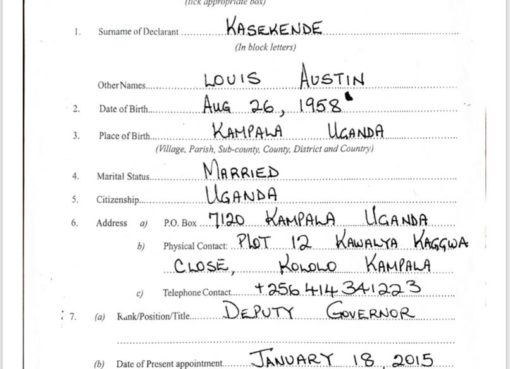 (tick appropriate box)
1. Surname of Declarant KASEKENDE
(In block letters)
Other Names LOUIS AUSTIN
2. Date of Birth AUG 26, 1958
3. Place of Birth KAMPALA UGANDA
(Village, Parish, Sub-county, County, District and Country)
4. Marital Status MARRIED
5. Citizenship UGANDA
6. Address a) P.O. Box 7120 KAMPALA UGANDA
b) Physical Contact: PLOT 12 KAWALYA KAGGWA
CLOSE, KOLOLO KAMPALA
c) Telephone Contact +256 414 341223
7. (a) Rank/Position/Title DEPUTY GOVERNOR
(b) Date of Present appointment JANUARY 18, 2015